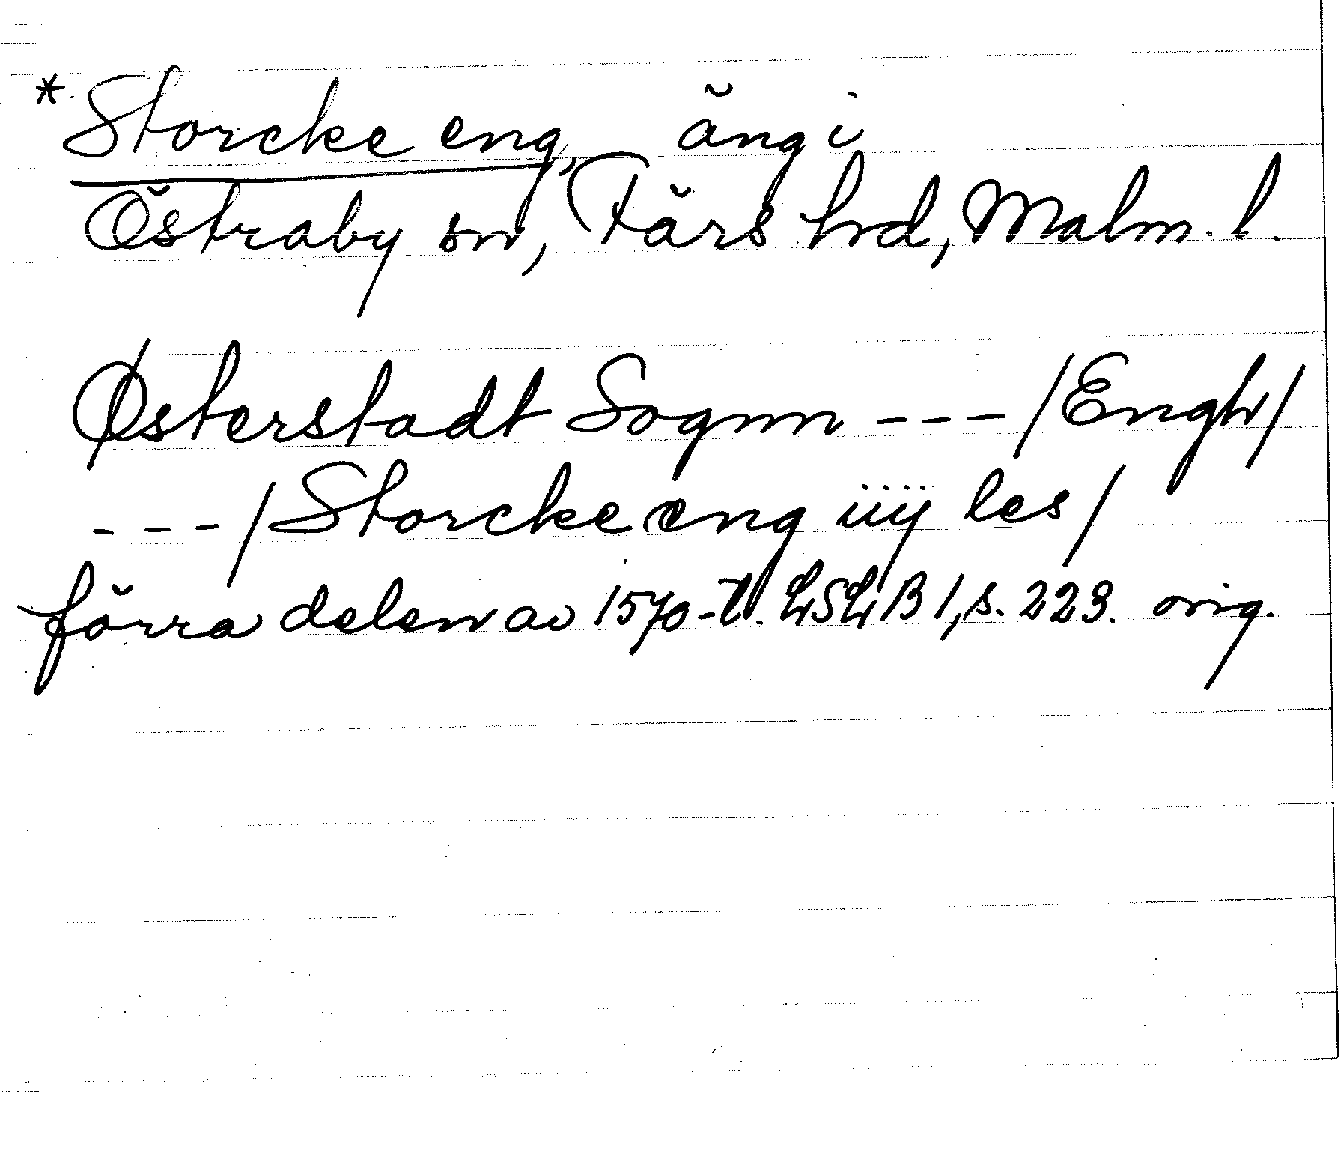 *Storcke eng, äng i
Östraby sn, Färs hd, Malm. l.
Østerstadt Sognn --- /Engh/
--- /Storcke eng iiij les/
förra delen av 1570-t. LSLB 1, s. 223. orig.